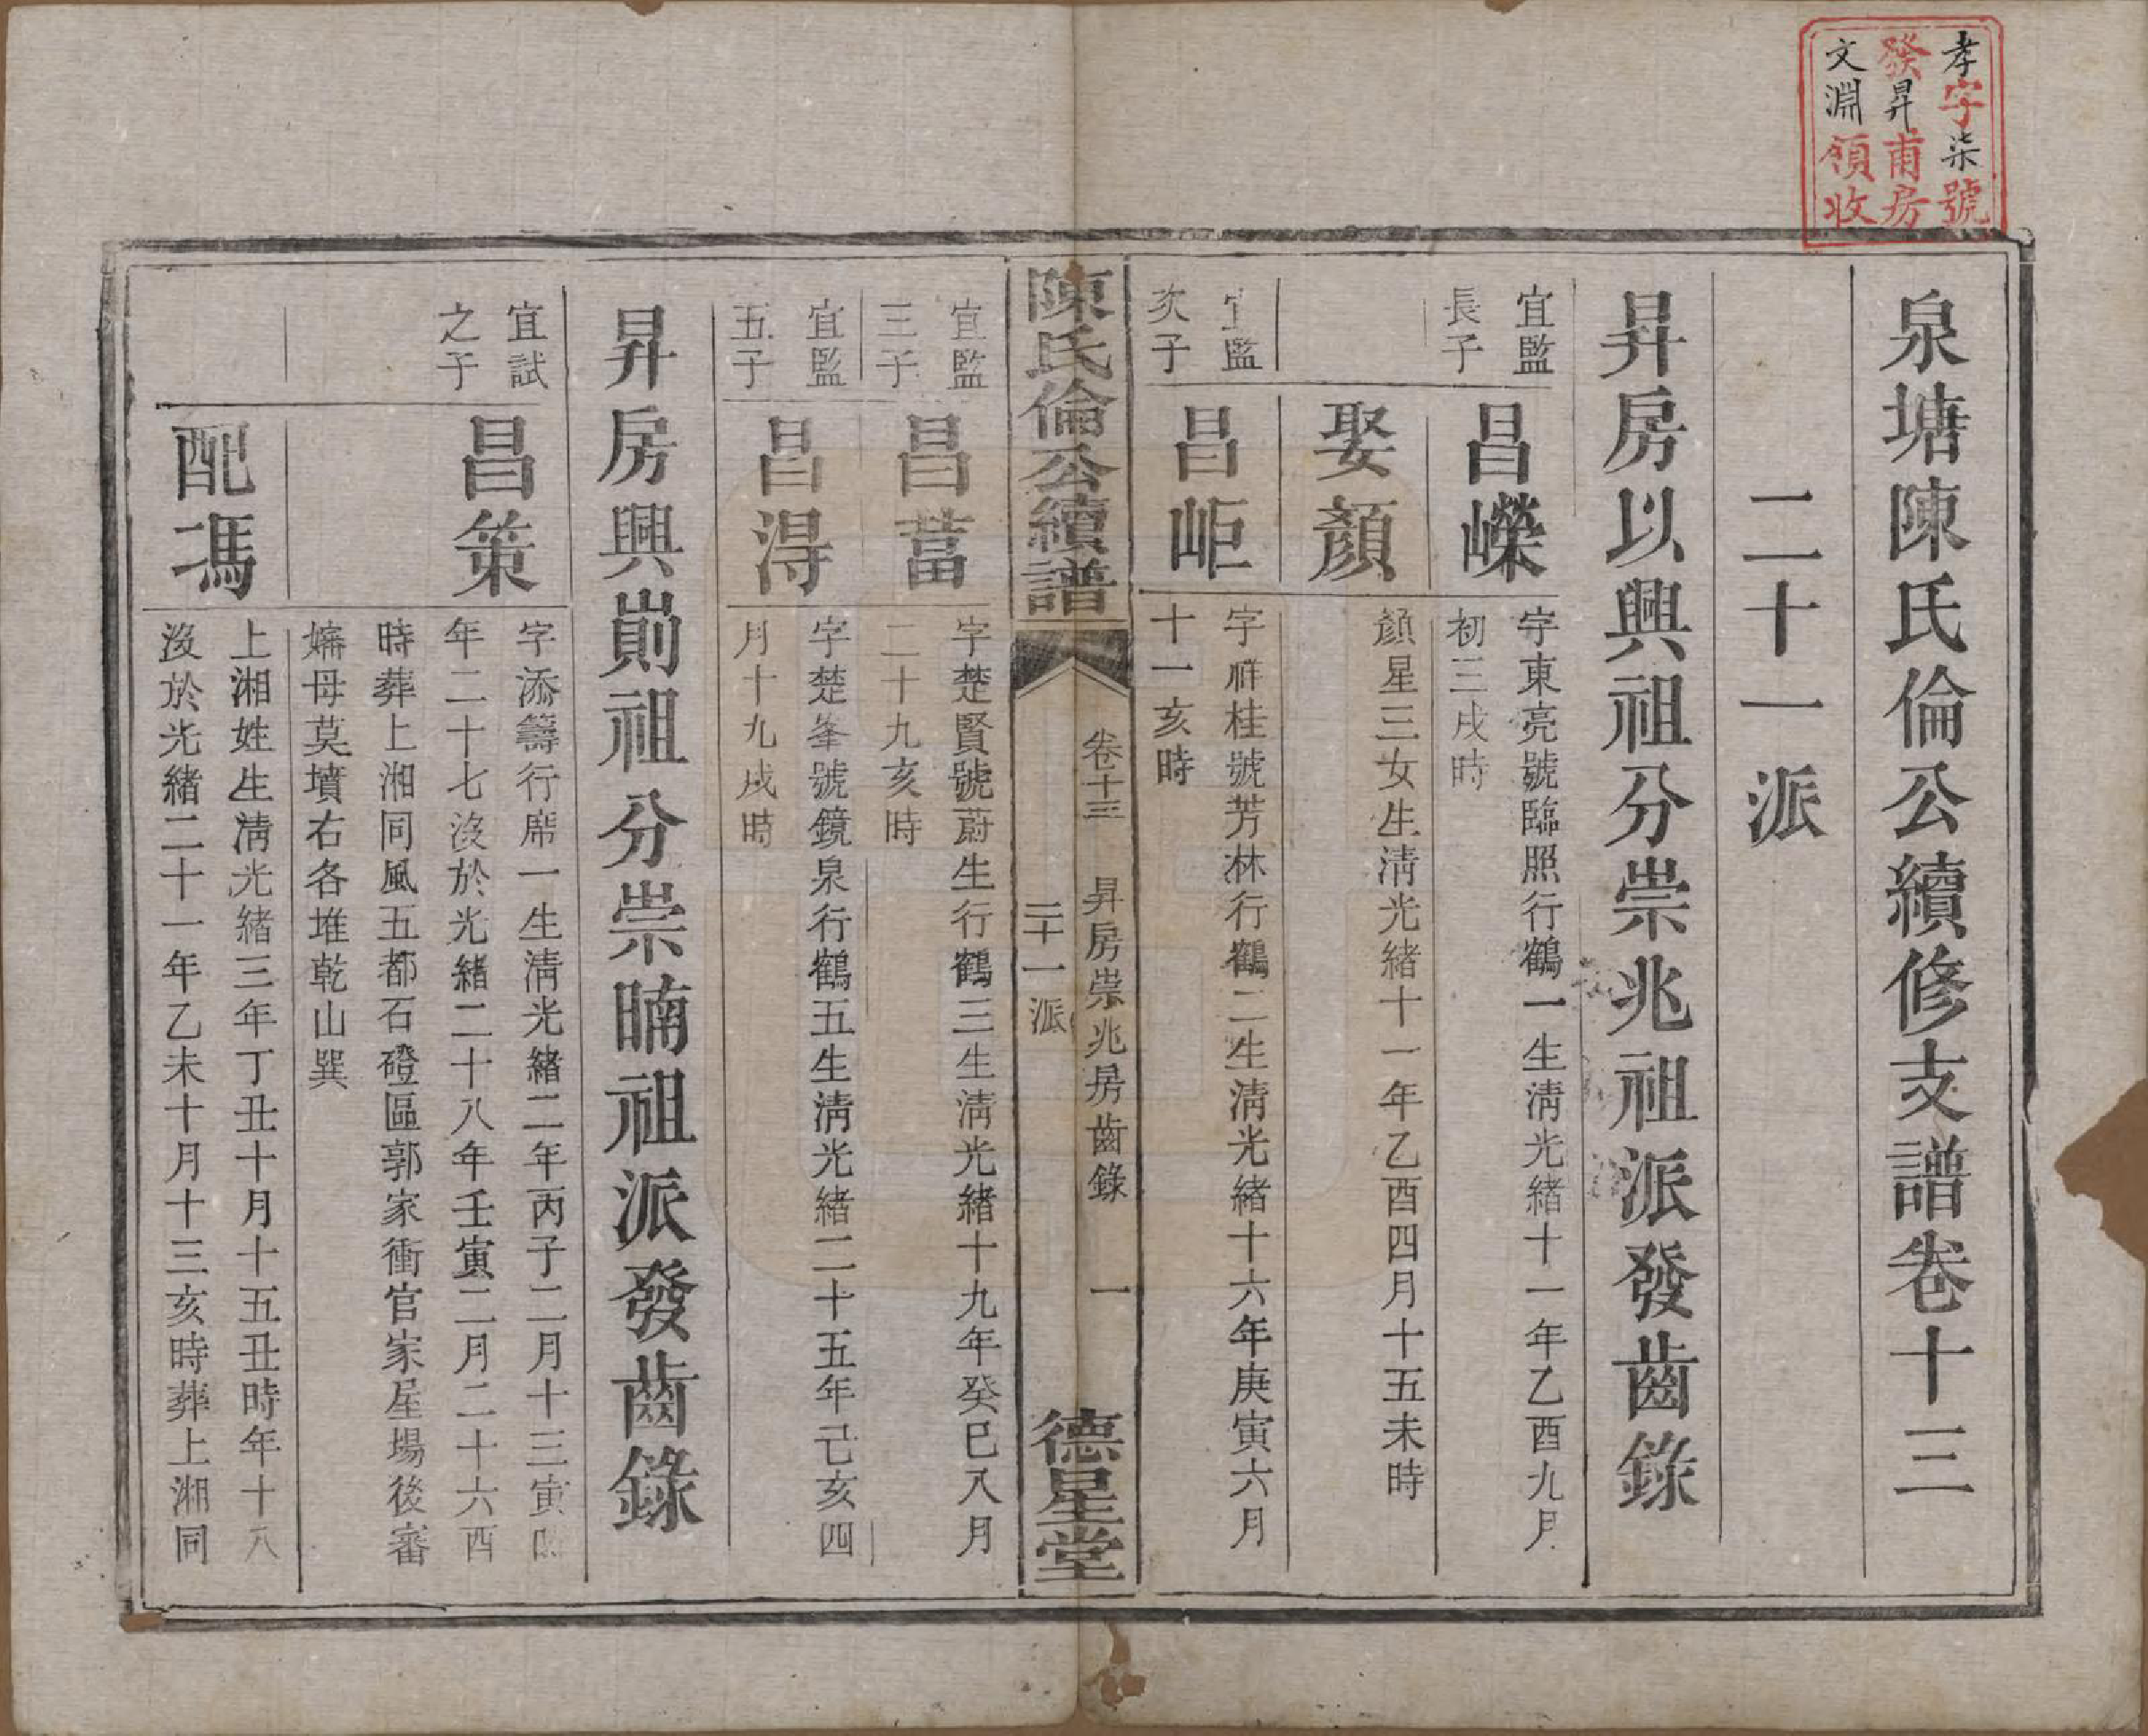 孝字柒號
發昇甫房
文淵領收
泉塘陳氏倫公續修支譜卷十三
二十一派
昇房以興祖分崇兆祖派發齒錄
宜監
長子
昌嶸
字東亮號臨照行鶴一生淸光緒十一年乙酉九月
初三戌時
娶顏
顏星三女生淸光緒十一年乙酉四月十五未時
宜監
次子
昌岠
字祥桂號芳林行鶴二生淸光緒十六年庚寅六月
十一亥時
陳氏倫公續譜
卷十三 昇房崇兆房齒錄 一
二十一派
德星堂
宜監
三子
昌葍
字楚賢號蔚生行鶴三生淸光緒十九年癸巳八月
二十九亥時
宜監
五子
昌淂
字楚峯號鏡泉行鶴五生淸光緒二十五年己亥四
月十九戌時
昇房興崱祖分崇暔祖派發齒錄
宜試
之子
昌策
字添籌行席一生淸光緒二年丙子二月十三寅時
年二十七沒於光緒二十八年壬寅二月二十六酉
時葬上湘同風五都石磴區郭家衝官家屋場後審
嬸母莫墳右各堆乾山巽
配馮
上湘姓生淸光緒三年丁丑十月十五丑時年十八
沒於光緒二十一年乙未十月十三亥時葬上湘同